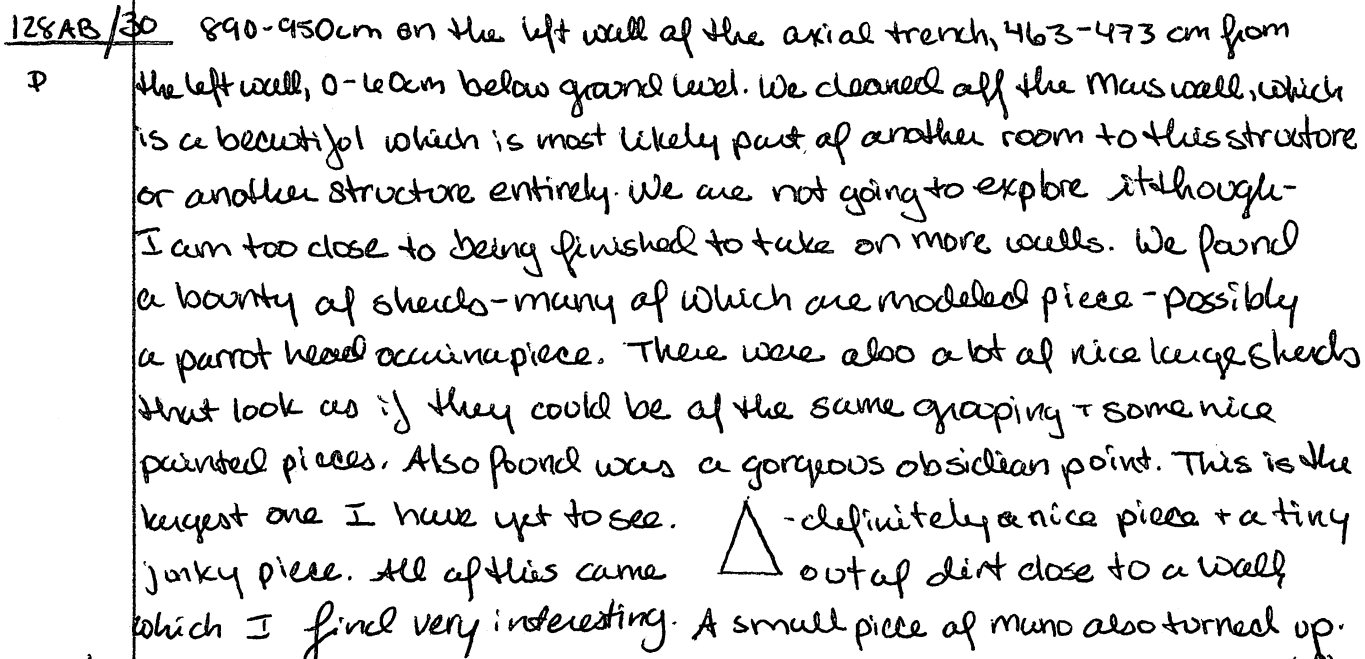 128AB/30 890-950cm on the left wall of the axial trench, 463-473 cm from
D the left wall, 0-60cm below ground level. We cleaned off the Maus wall, which
is a beautiful which is most likely part of another room to this structure
or another structure entirely. We are not going to explore it though-
I am too close to being finished to take on more walls. We found
a bounty of sherds-many of which are modeled piece-possibly
a parrot head piece. There were also a lot of nice large sherds
that look as if they could be of the same grouping + some nice
painted pieces. Also found was a gorgeous obsidian point. This is the
largest one I have yet to see. -definitely a nice piece + a tiny
junky piece. All of this came out of dirt close to a wall,
which I find very interesting. A small piece of mano also turned up.